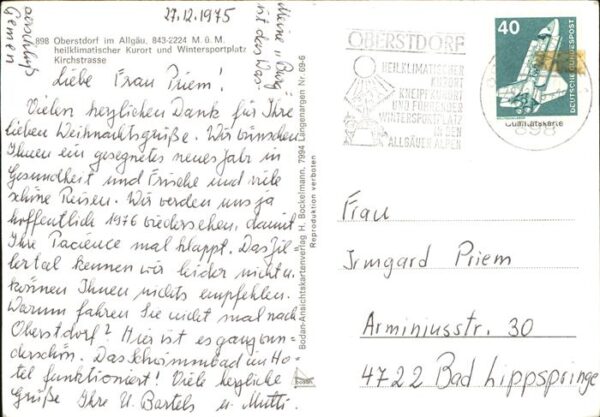 27.12.1975
898 Oberstdorf im Allgäu, 843-2224 M. ü. M.
heilklimatischer Kurort und Wintersportplatz
Kirchstrasse
Liebe Frau Priem!
Vielen herzlichen Dank für Ihre
lieben Weihnachtsgrüße. Wir wünschen
Ihnen ein gesegnetes neues Jahr in
Gesundheit und Frische und viele
schöne Reisen. Wir werden uns ja
hoffentlich 1976 wiedersehen, damit
Ihre Pacience mal klappt. Das Zil-
lertal kennen wir leider nicht u.
können Ihnen nichts empfehlen.
Warum fahren Sie nicht mal nach
Oberstdorf? Hier ist es ganz wun-
derschön. Das Schwimmbad im Ho-
tel funktioniert! Viele herzliche
Grüße Ihre U. Bartels u. Mutti.
Meine "Burg"
ist das
Bodan-Ansichtskartenverlag H. Bockelmann, 7994 Langenargen Nr. 69-6
Reproduktion verboten
bodan
OBERSTDORF
HEILKLIMATISCHER
KURORT
KNEIPPKURORT
UND FÜHRENDER
WINTERSPORTPLATZ
IN DEN
ALLGÄUER ALPEN
40
DEUTSCHE BUNDESPOST
Qualitätskarte
898
Frau
Irmgard Priem
Arminiusstr. 30
4722 Bad Lippspringe